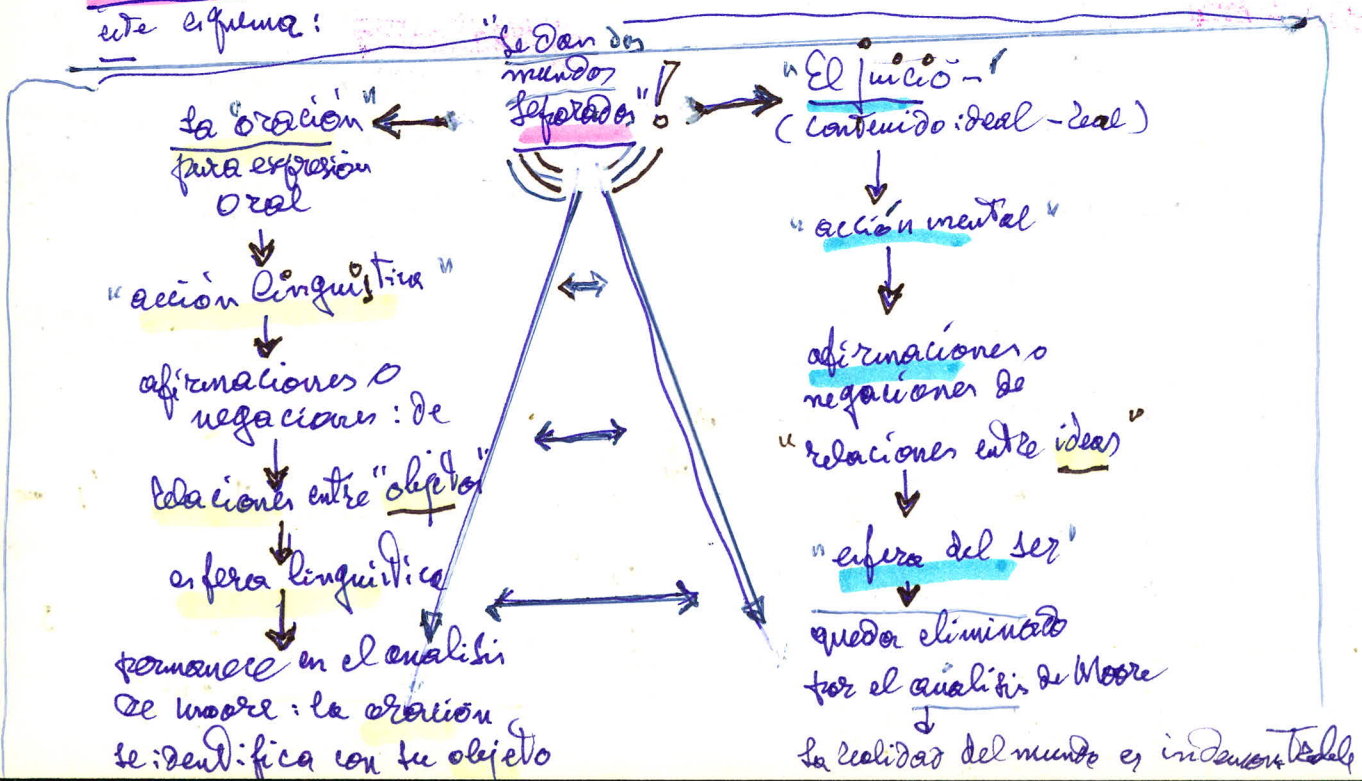 este esquema:
"Se dan dos
mundos
separados"!
La "oración"
para expresión
oral
"acción lingüística"
afirmaciones o
negaciones: de
relaciones entre "objetos"
esfera lingüistica
permanece en el analisis
de Moore: la oración
se identifica con su objeto
"El juicio-"
(contenido: ideal-real)
"acción mental"
afirmaciones o
negaciones de
"relaciones entre ideas"
"esfera del ser"
queda eliminado
por el análisis de Moore
la realidad del mundo es indemostrable